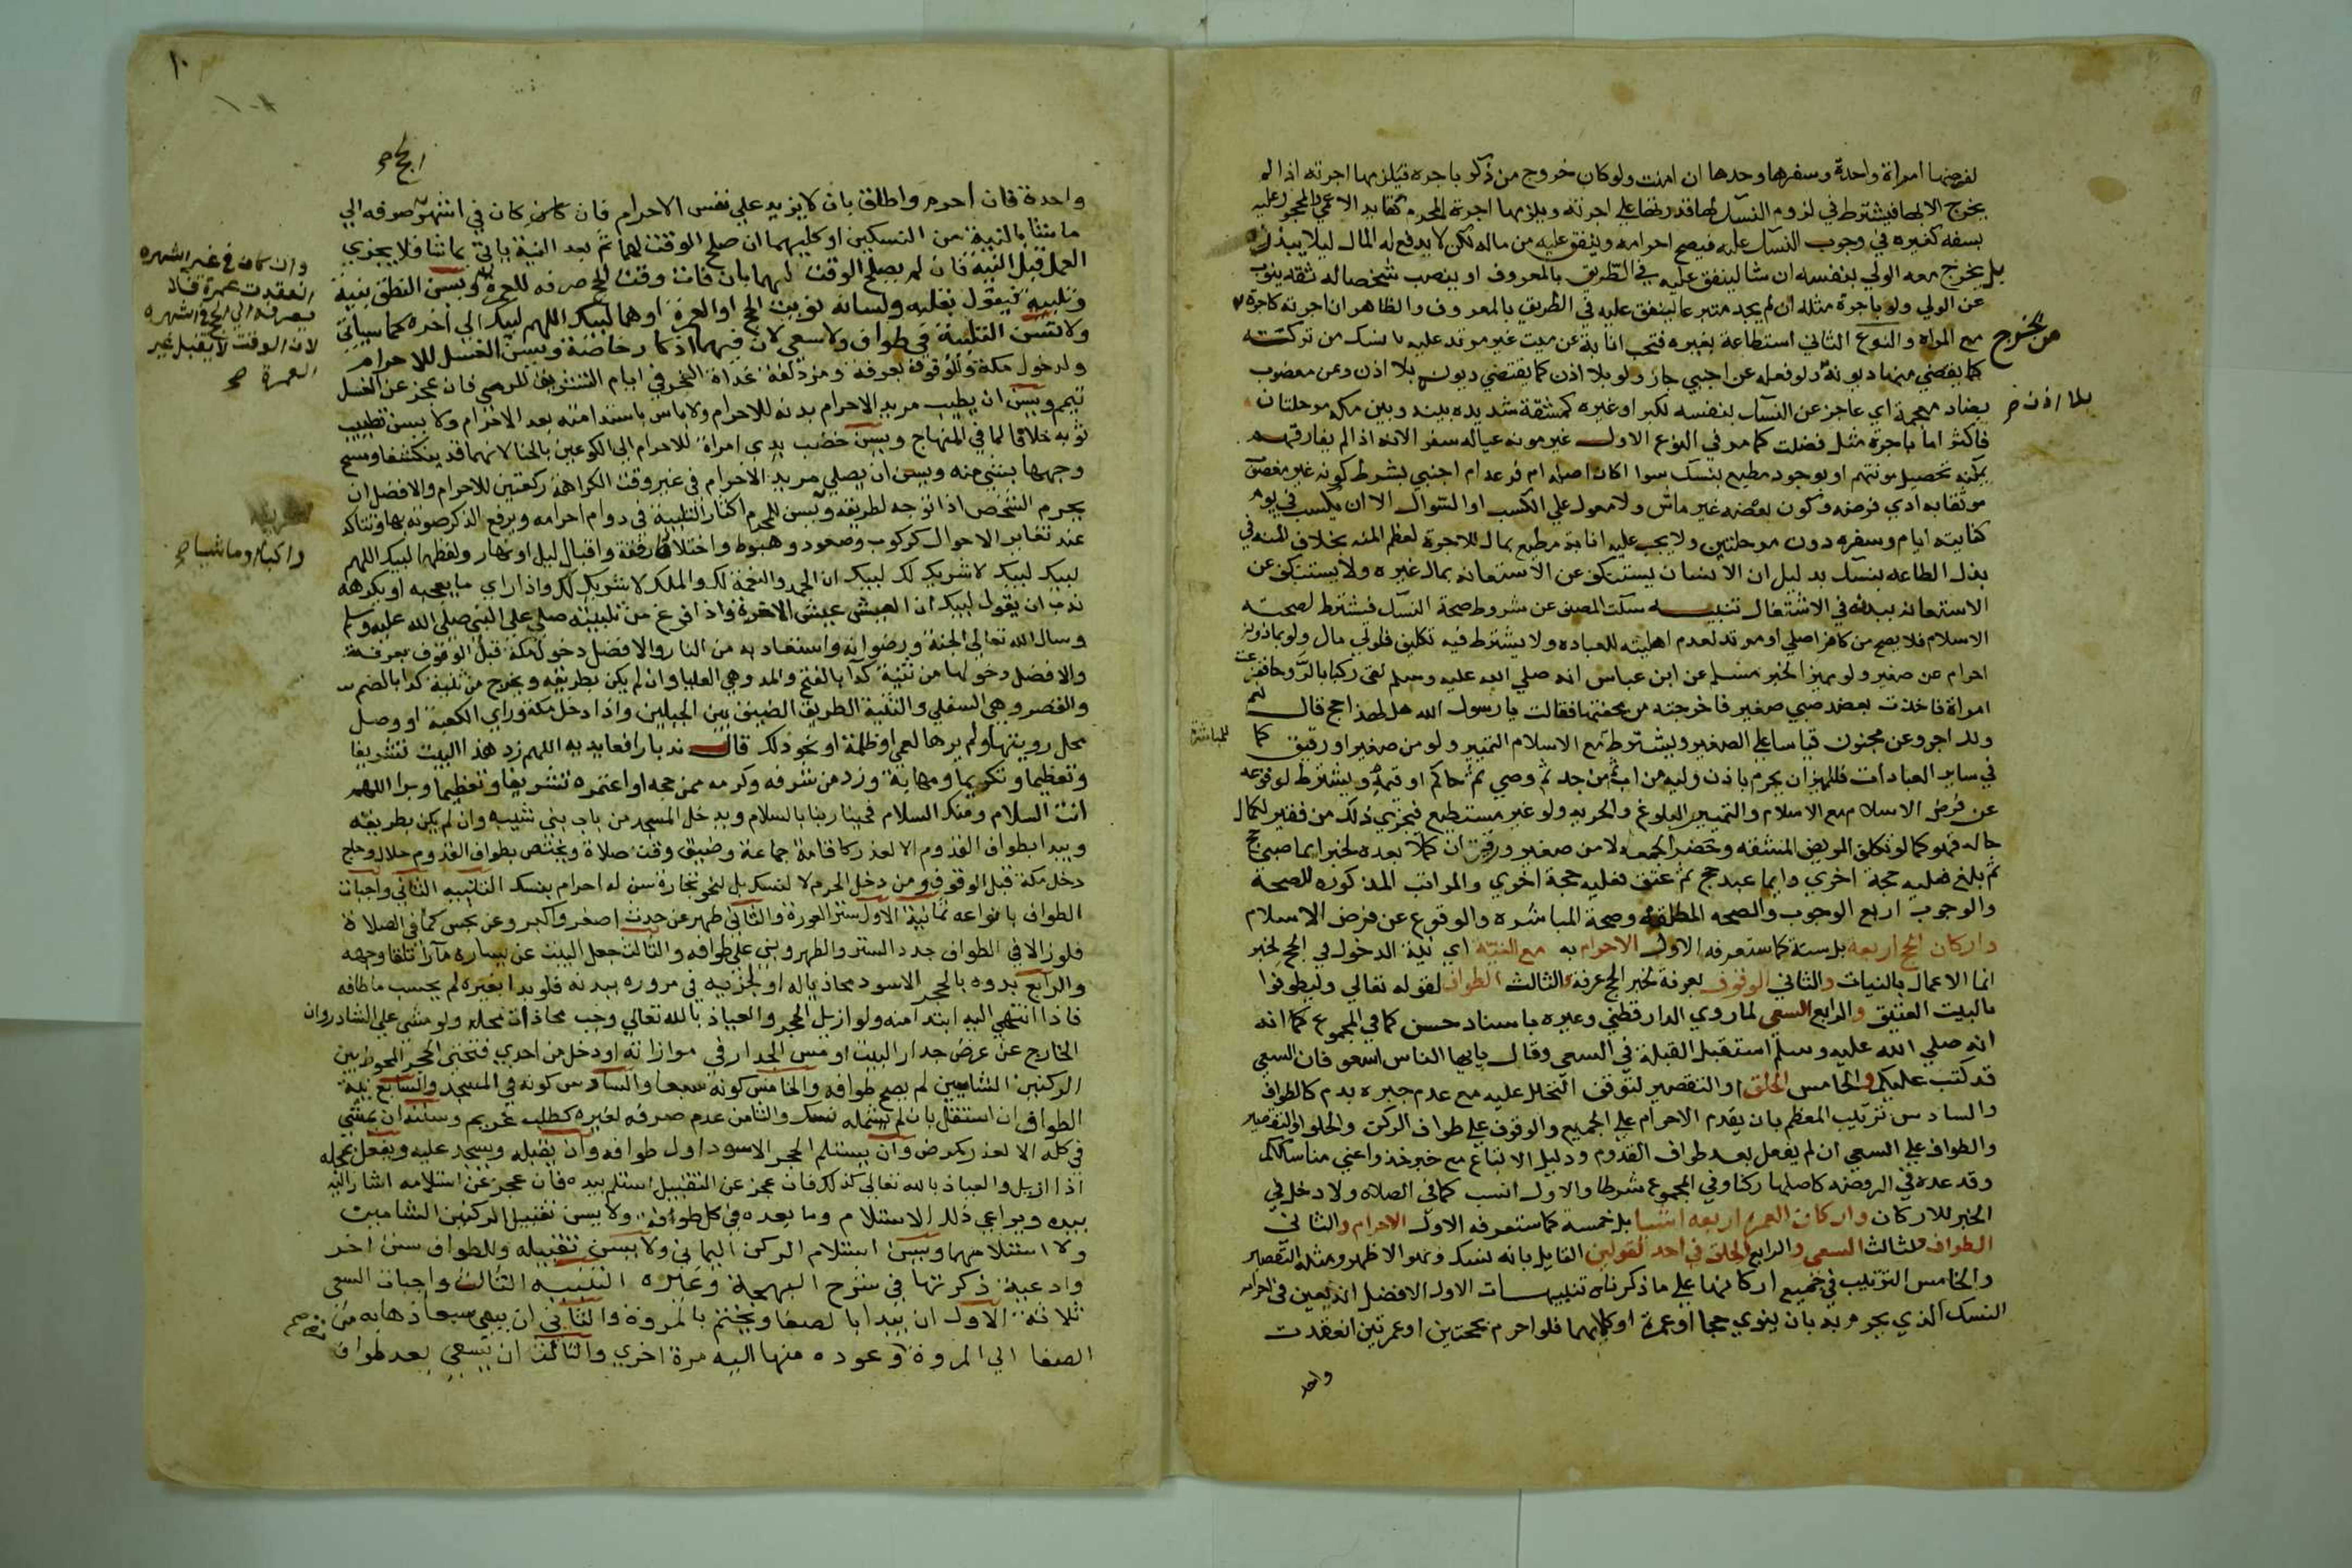 لفرضها امراة واحدة وسفرها وحدها ان امنت ولو كان خروج من ذكر باجرة فيلزمها اجرته اذا لم
يخرج الا بها فيشترط في لزوم النسك لها قدرتها علي اجرته ويلزمها اجرة المحرم كقايد الاعمي والمحجور عليه
بسفه كغيره في وجوب النسك عليه فيصح احرامه وينفق عليه من ماله لكن لا يدفع له المال ليلا يبذره
بل يخرج معه الولي بنفسه ان شا لينفق عليه في الطريق بالمعروف او ينصب شخصا له ثقة ينوب
عن الولي ولو باجرة مثله ان لم يجد متبرعا لينفق عليه في الطريق بالمعروف والظاهر ان اجرته كاجرة
من يخرج
مع المراة والنوع الثاني استطاعة بغيره فتجب انابة عن ميت غير مرتد عليه نسك من تركته
كما يقضي منها ديونه ولو فعله عن اجنبي جاز ولو بلا اذن كما يقضي ديونه بلا اذن وعن معضوب
بلا اذن صح
بضاد معجمة اي عاجز عن النسك بنفسه لكبر او غيره كمشقة شديدة بينه وبين مكة مرحلتان
فاكثر اما باجرة مثل فضلت كما مر في النوع الاول غير مونة عياله سفرا لانه اذا لم يفارقهم
يمكنه تحصيل مونتهم او بوجود مطيع بنسك سوا اكان اصله ام فرعه ام اجنبي بشرط كونه غير معضوب
موثقا به ادي فرضه وكون بعضه غير ماش ولا معول علي الكسب او السوال الا ان يكسب في يوم
كفاية ايام وسفره دون مرحلتين ولا يجب عليه انابة مطيع بمال للاجرة لعظم المنة بخلاف المنة في
بذل الطاعة بنسك بدليل ان الانسان يستنكف عن الاستعانة بمال غيره ولا يستنكف عن
الاستعانة ببدنه في الاشتغال تنبيه سكت المصنف عن شروط صحة النسك فيشترط لصحته
الاسلام فلا يصح من كافر اصلي او مرتد لعدم اهليته للعبادة ولا يشترط فيه تكليف فلولي مال ولو بماذونه
احرام عن صغير ولو مميزا لخبر مسلم عن ابن عباس انه صلي الله عليه وسلم لقي ركبا بالروحا ففزعت
امراة فاخذت بعضد صبي صغير فاخرجته من محفتها فقالت يا رسول الله هل لهذا حج قال نعم
ولك اجر وعن مجنون قياسا علي الصغير ويشترط مع الاسلام التمييز ولو من صغير او رقيق كما
للمباشرة
في ساير العبادات فللمميز ان يحرم باذن وليه من اب ثم من جد ثم وصي ثم حاكم او قيمه ويشترط لوقوعه
عن فرض الاسلام مع الاسلام والتمييز البلوغ والحرية ولو غير مستطيع فيجزي ذلك من فقير لكمال
حاله فهو كما لو تكلف المريض المشقة وحضر الجمعة لا من صغير ورقيق ان كملا بعده لخبر ايما صبي حج
ثم بلغ فعليه حجة اخري وايما عبد حج ثم عتق فعليه حجة اخري والمراتب المذكورة للصحة
والوجوب اربع الوجوب والصحة المطلقة وصحة المباشرة والوقوع عن فرض الاسلام
واركان الحج اربعة بل ستة كما ستعرفه الاول الاحرام به مع النية اي نية الدخول في الحج لخبر
انما الاعمال بالنيات والثاني الوقوف بعرفة لخبر الحج عرفة والثالث الطواف لقوله تعالي وليطوفوا
بالبيت العتيق والرابع السعي لما روي الدارقطني وغيره باسناد حسن كما في المجموع كما انه
انه صلي الله عليه وسلم استقبل القبلة في السعي وقال يايها الناس اسعوا فان السعي
قد كتب عليكم والخامس الحلق او التقصير لتوقف التحلل عليه مع عدم جبره بدم كالطواف
والسادس ترتيب المعظم بان يقدم الاحرام علي الجميع والوقوف علي طواف الركن والحلق او التقصير
والطواف علي السعي ان لم يفعل بعد طواف القدوم ودليل الاتباع مع خبر خذوا عني مناسككم
وقد عده في الروضة كاصلها ركنا وفي المجموع شرطا والاول انسب كما في الصلاة ولا دخل في
الجبر للاركان واركان العمرة اربعة اشيا بل خمسة كما ستعرفه الاول الاحرام والثاني
الطواف والثالث السعي والرابع الحلق في احد القولين القايل بانه نسك وهو الاظهر ومثله التقصير
والخامس الترتيب في جميع اركانها علي ما ذكرناه تنبيهات الاول الافضل ان يعين في احرامه
النسك الذي يحرم به بان ينوي حجا او عمرة او كليهما فلو احرم بحجتين او عمرتين انعقدت
واحد
١٠
١٠٨
الحج
واحدة فان احرم واطلق بان لا يزيد علي نفس الاحرام فان كان في اشهر صرفه الي
ما شا بالنية من النسكين او كليهما ان صلح الوقت لهما ثم بعد النية ياتي بما شا فلا يجزي
العمل قبل النية فان لم يصلح الوقت لهما بان فات وقت الحج صرفه للعمرة ويسن النطق بنية
وان كان في غير اشهره
انعقدت عمرة فلا
يصرفه الي الحج في اشهره
لان الوقت لا يقبل غير
العمرة صح
وتلبية فيقول بقلبه ولسانه نويت الحج او العمرة او هما لبيك اللهم لبيك الي اخره كما سياتي
ولا تسن التلبية في طواف ولا سعي لان فيهما اذكارا خاصة ويسن الغسل للاحرام
ولدخول مكة وللوقوف بعرفة ومزدلفة غداة النحر في ايام التشريق للرمي فان عجز عن الغسل
تيمم ويسن ان يطيب مريد الاحرام بدنه للاحرام ولا باس باستدامته بعد الاحرام ولا يسن تطييب
ثوبه خلافا لما في المنهاج ويسن خضب يدي امراة للاحرام الي الكوعين بالحنا لانهما قد ينكشفا ومسح
وجهها بشي منه ويسن ان يصلي مريد الاحرام في غير وقت الكراهة ركعتين للاحرام والافضل ان
يحرم الشخص اذا توجه لطريقه ويسن للمحرم اكثار التلبية في دوام احرامه ويرفع الذكر صوته بها وتتاكد
عند تغاير الاحوال كركوب وصعود وهبوط واختلاط رفقة واقبال ليل او نهار ولفظها لبيك اللهم
لبيك لبيك لا شريك لك لبيك ان الحمد والنعمة لك والملك لا شريك لك واذا راي ما يعجبه او يكرهه
راكبا وماشيا صح
ندب ان يقول لبيك ان العيش عيش الاخرة واذا فرغ من تلبيته صلي علي النبي صلي الله عليه وسلم
وسال الله تعالي الجنة ورضوانه واستعاذ به من النار والافضل دخول مكة قبل الوقوف بعرفة
والافضل دخولها من ثنية كدا بالفتح والمد وهي العليا وان لم يكن بطريقه ويخرج من ثنية كدا بالضم
والقصر وهي السفلي والثنية الطريق الضيق بين الجبلين واذا دخل مكة وراي الكعبة او وصل
محل رويتها ولم يرها لعمي او ظلمة او نحو ذلك قال ندبا رافعا يديه اللهم زد هذا البيت تشريفا
وتعظيما وتكريما ومهابة وزد من شرفه وكرمه ممن حجه او اعتمره تشريفا وتعظيما وبرا اللهم
انت السلام ومنك السلام فحينا ربنا بالسلام ويدخل المسجد من باب بني شيبه وان لم يكن بطريقه
ويبدا بطواف القدوم الا لعذر كاقامة جماعة وضيق وقت صلاة ويختص بطواف القدوم حلال وحاج
دخل مكة قبل الوقوف ومن دخل الحرم لا لنسك بل لنحو تجارة سن له احرام بنسك التنبيه الثاني واجبات
الطواف بانواعه ثمانية الاول ستر العورة والثاني طهر عن حدث اصغر واكبر وعن نجس كما في الصلاة
فلو زالا في الطواف جدد الستر والطهر وبني علي طوافه والثالث جعل البيت عن يساره مارا تلقا وجهه
والرابع بدوه بالحجر الاسود محاذيا له او لجزئه في مروره ببدنه فلو بدا بغيره لم يحسب ما طافه
فاذا انتهي اليه ابتدا منه ولو ازيل الحجر والعياذ بالله تعالي وجب محاذات محله ولو مشي علي الشاذروان
الخارج عن عرض جدار البيت او مس الجدار في موازاته او دخل من احدي فتحتي الحجر المحوط بين
الركنين الشاميين لم يصح طوافه والخامس كونه سبعا والسادس كونه في المسجد والسابع نية
الطواف ان استقل بان لم يشمله نسك والثامن عدم صرفه لغيره كطلب غريم وسننه ان يمشي
في كله الا لعذر كمرض وان يستلم الحجر الاسود اول طوافه وان يقبله ويسجد عليه ويفعل بمحله
اذا ازيل والعياذ بالله تعالي كذلك فان عجز عن التقبيل استلم بيده فان عجز عن استلامه اشار اليه
بيده ويراعي ذلك الاستلام وما بعده في كل طوافه ولا يسن تقبيل الركنين الشاميين
ولا استلامهما ويسن استلام الركن اليماني ولا يسن تقبيله وللطواف سنن اخر
وادعية ذكرتها في شرح البهجة وغيره التنبيه الثالث واجبات السعي
ثلاثة الاول ان يبدا بالصفا ويختم بالمروة والثاني ان يسعي سبعا ذهابه من
الصفا الي المروة وعوده منها اليه مرة اخري والثالث ان يسعي بعد طواف